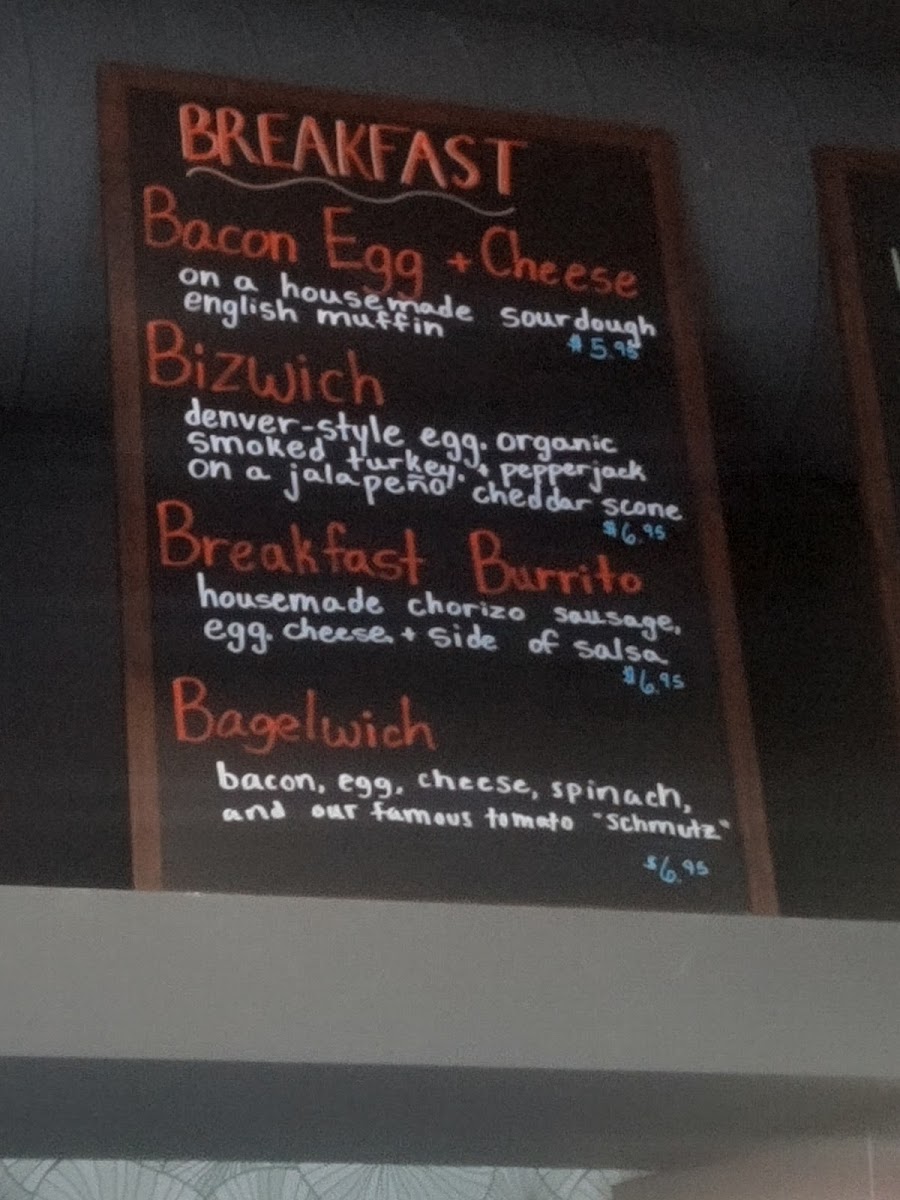 BREAKFAST
Bacon Egg + Cheese
on a housemade sourdough
english muffin
$5.95
Bizwich
denver-style egg, organic
smoked turkey, + pepperjack
on a jalapeño cheddar scone
$6.95
Breakfast Burrito
housemade chorizo sausage,
egg, cheese, + side of salsa
$6.95
Bagelwich
bacon, egg, cheese, spinach,
and our famous tomato "Schmutz"
$6.95